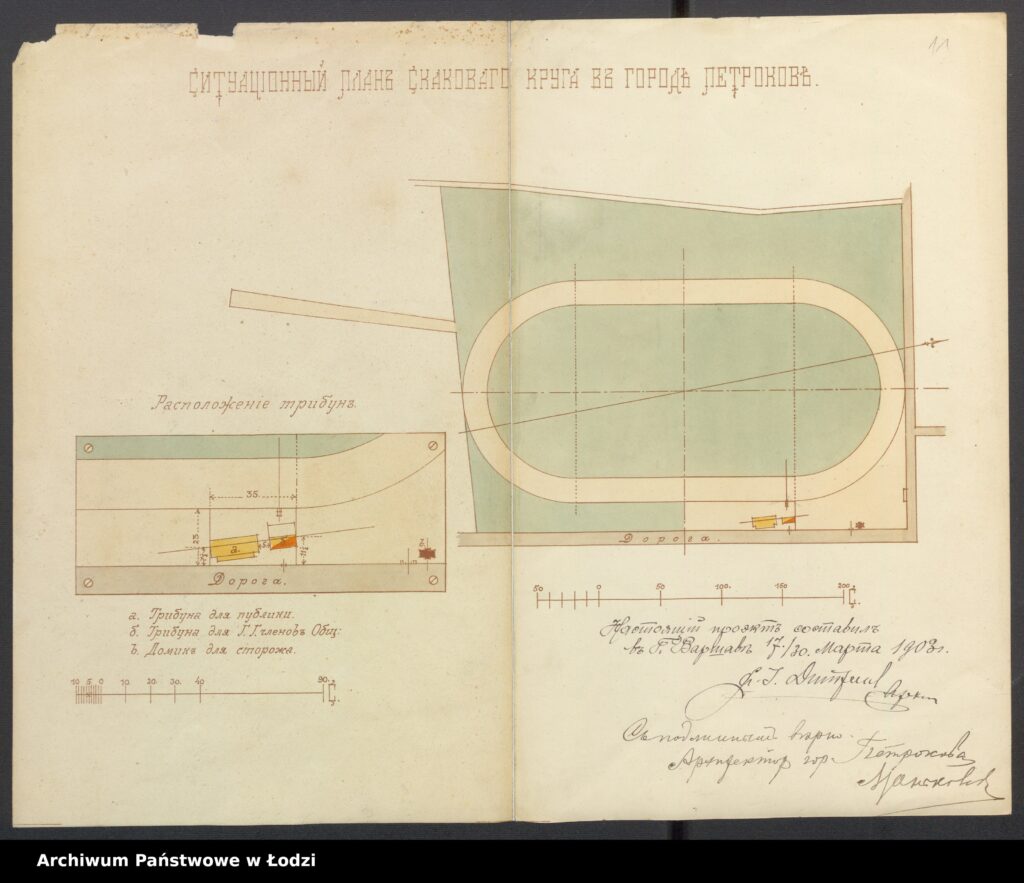 СИТУАЦІОННЫЙ ПЛАНЪ СКАКОВАГО КРУГА ВЪ ГОРОДѢ ПЕТРОКОВѢ.
Расположеніе трибунъ.
35.
23
а.
Дорога.
а. Трибуна для публики.
б. Трибуна для Г.Г. членовъ Общ:
в. Домикъ для сторожа.
10 5 0 10. 20 30. 40 90. С.
Дорога.
50 0 50 100. 150 200 С.
Настоящій проэктъ составилъ
въ Г. Варшавѣ 17/30. Марта 1903г.
Съ подлиннымъ вѣрно.
Архитекторъ гор. Петрокова
Archiwum Państwowe w Łodzi